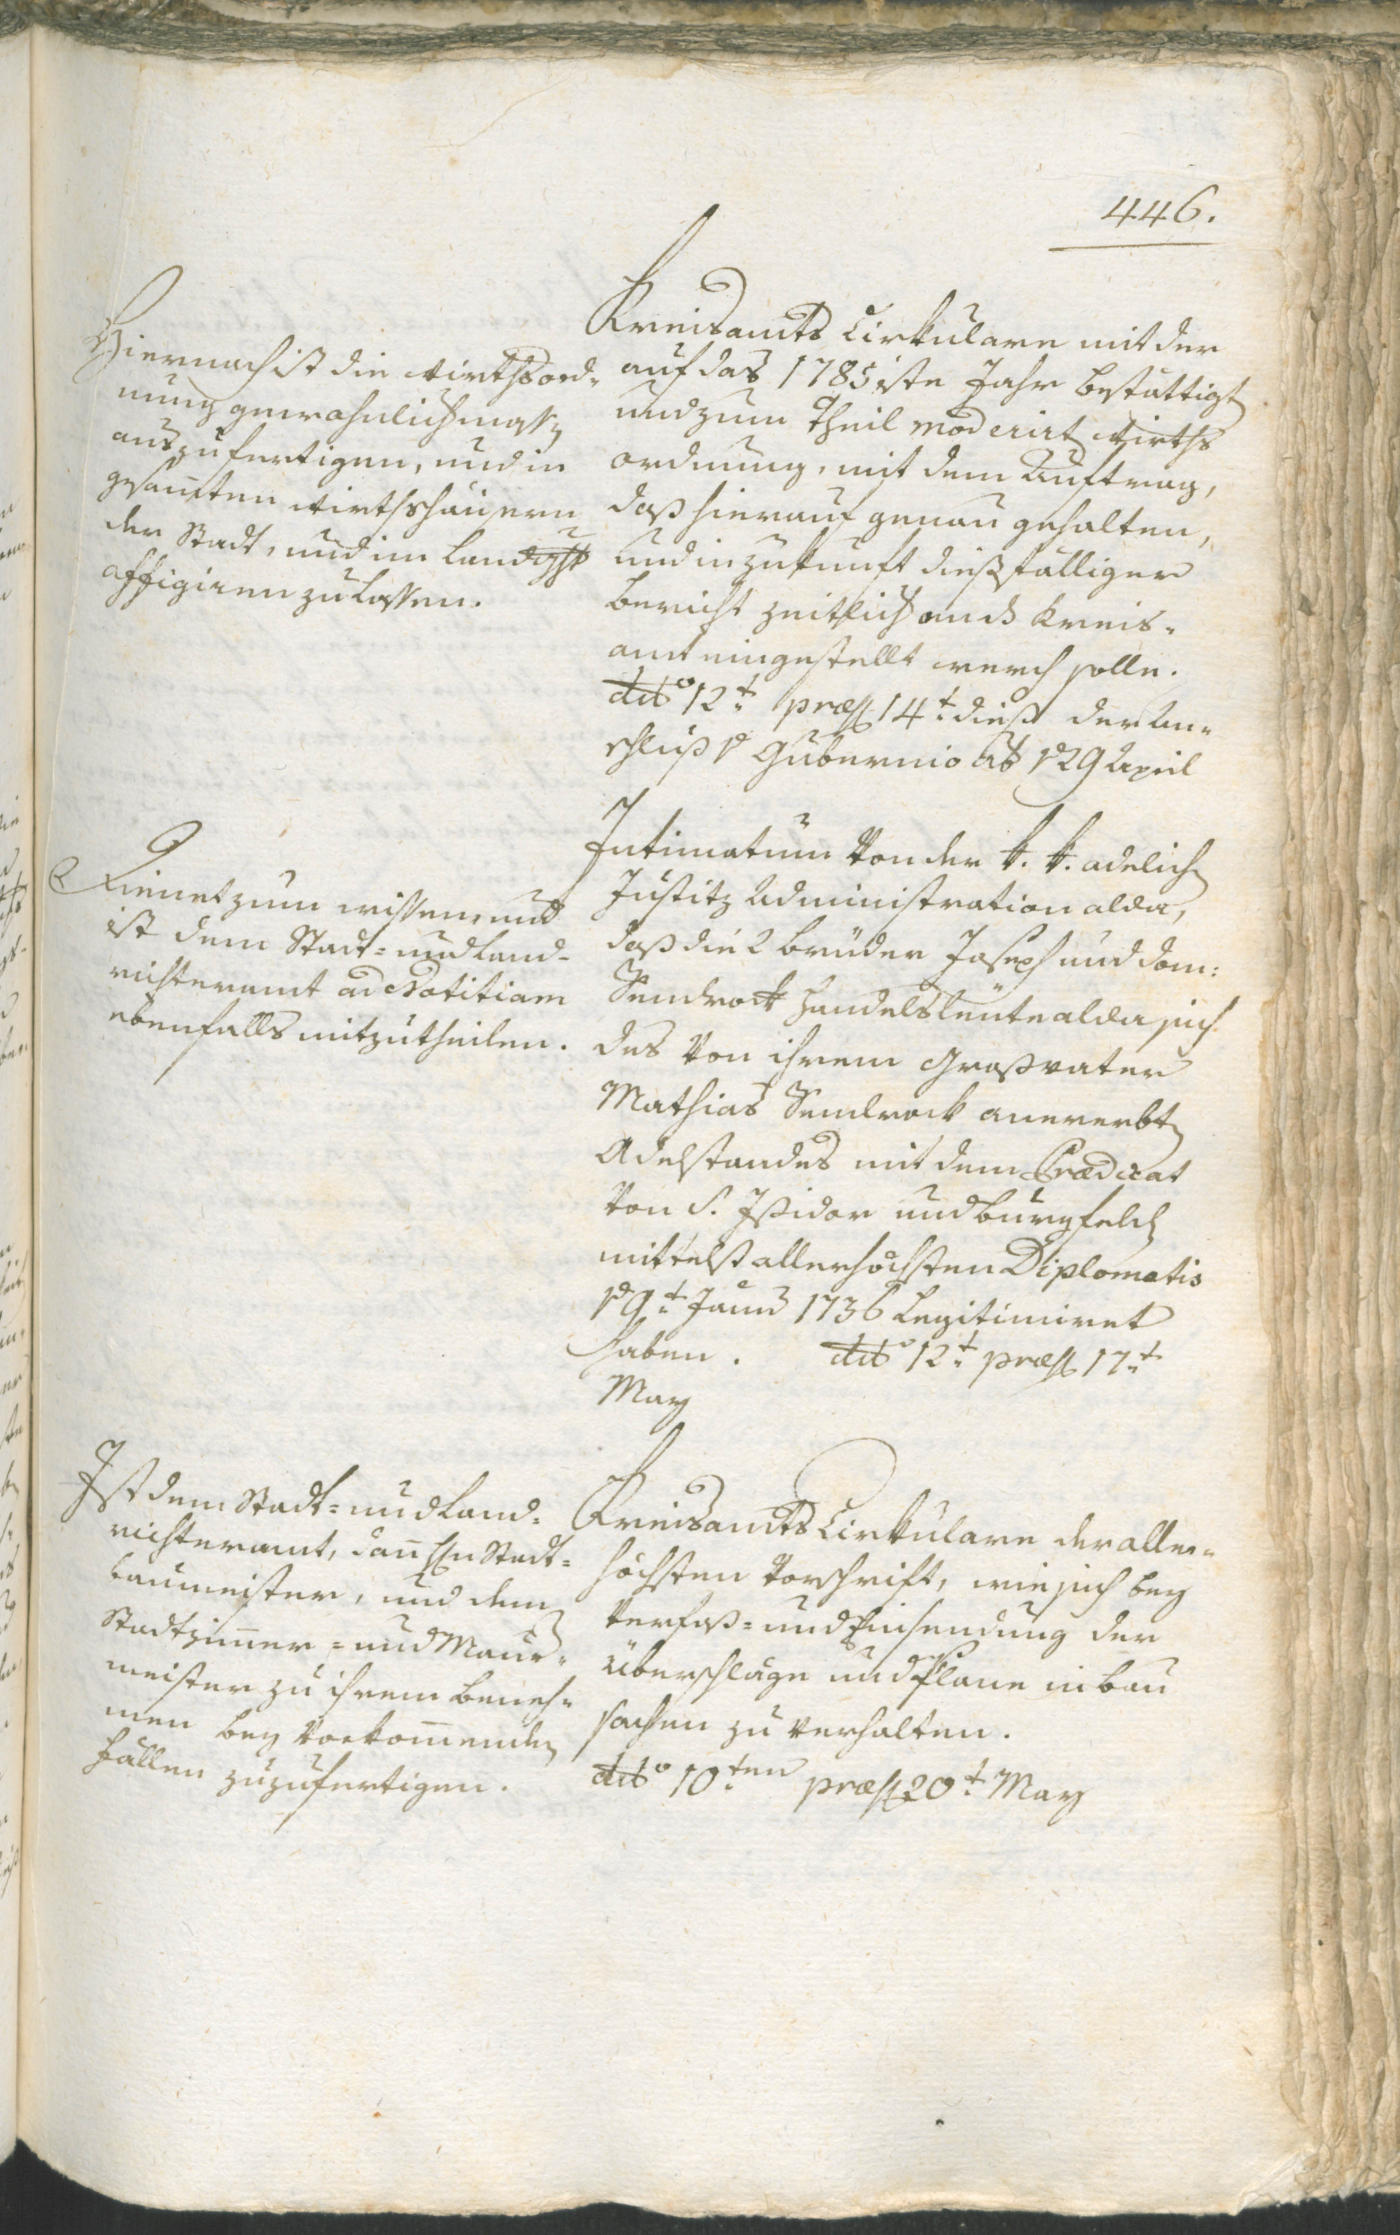 446.
Hiernach ist die Wirthsord-
nung gewohnlichermassen
auszufertigen, und in
gesam̅ten Wirthshäusern
der Stadt, und im Landght
affigiren zu lassen.
Kreisamts Cirkulare mit der
auf das 1785iste Jahr bestättigt
und zum Theil moderirt Wirths
ordnung, mit dem Auftrag,
daß hierauf genau gehalten,
und in Zukunft dießfälliger
Bericht zeitlich an das Kreis-
amt eingestellt werden solle.
ddto 12t præs 14t dieß der An-
schluß Gubernio ddto 29 April
Dienet zum wissen, und
ist dem Stadt- und Land-
richteramt ad Notitiam
ebenfalls mitzutheilen.
Intimatum von der k. k. adelich
Justitz Administration alda,
daß die 2 Brüder Joseph und Dom:
Sendrock Handelsleute alda sich
des von ihrem Großvater
Mathias Sendrock anererbten
Adelstandes mit dem Prædicat
von S. Isidor und Burgfelden
mittelst allerhöchsten Diplomatis
9t Junÿ 1736 legitimiret
haben. ddto 12t præs 17t
May
Ist dem Stadt- und Land-
richteramt, dan̅ H Stadt-
baumeister, und dem
Stadtzim̅er- und Maur-
meister zu ihrem Beneh-
men bey vorkom̅enden
Fällen zuzufertigen.
Kreisamts Cirkulare der aller-
höchsten Vorschrift, wie sich bey
Verfaß- und Einsendung der
Überschläge und Plane in Bau
sachen zu verhalten.
ddto 10ten præs 20t May